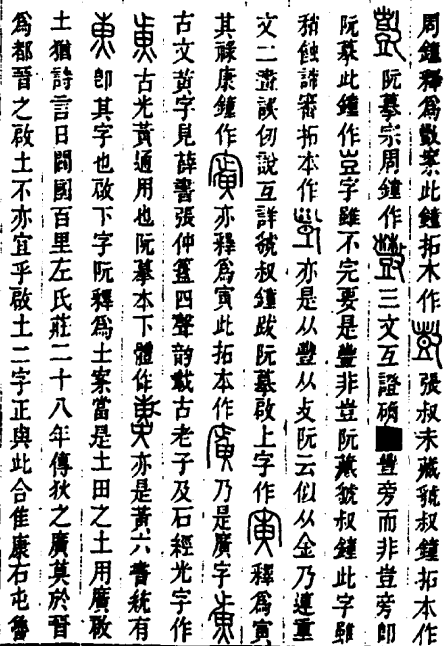 周鐘釋爲數案此鐘拓本作張叔未藏虢叔鐘拓本作
阮摹宗周鐘作三文互證確豐旁而非豈旁即
阮摹此鐘作豈字雖不完要是豐非豈阮藏虢叔鐘此字雖
稍蝕諦審拓本作亦是从豐从攴阮云似从金乃連重
文二畫誤仞說互詳虢叔鐘跋阮摹啟上字作釋爲寅
其祿康鐘作亦釋爲寅此拓本作乃是廣字
古文黃字見薛書張仲簠四聲韵載古老子及石經光字作
古光黃通用也阮摹本下體作亦是黃六書統有
即其字也啟下字阮釋爲士案當是土田之土用廣啟
土猶詩言日闢國百里左氏莊二十八年傳狄之廣莫於晉
爲都晉之啟土不亦宜乎啟土二字正與此合隹康右屯魯